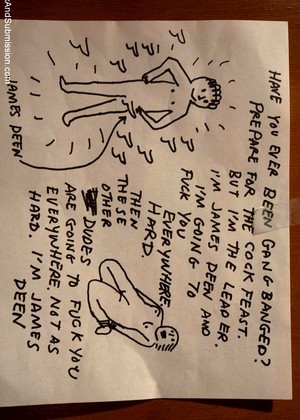 HAVE YOU EVER BEEN GANG BANGED?
PREPARE FOR THE COCK FEAST.
BUT I'M THE LEADER.
I'M JAMES DEEN AND
I'M GOING TO
FUCK YOU
EVERYWHERE
HARD
THEN
THESE
OTHER
DUDES
ARE GOING TO FUCK YOU
EVERYWHERE, NOT AS
HARD. I'M JAMES
DEEN
JAMES DEEN
AndSubmission.com